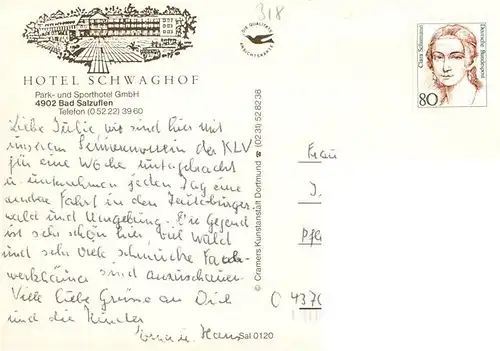 318
HOTEL SCHWAGHOF
Park- und Sporthotel GmbH
4902 Bad Salzuflen
Telefon (0 52 22) 39 60
DIE QUALITÄTS
ANSICHTSKARTE
Clara Schumann
Deutsche Bundespost
80
© Cramers Kunstanstalt Dortmund ☎ (02 31) 52 82 38
Liebe Jutie wir sind hier mit
unserem verein der KLV
für eine Woche untergebracht
u. unternehmen jeden Tag eine
andere Fahrt in den Teutoburger-
wald und Umgebung. Die Gegend
ist sehr schön hier, viel Wald
und sehr viele schmucke Fach-
werkhäuser sind anzuschauen.
Viele liebe Grüsse an Dich
und die Kinder
Erna u. Hans
Frau
J.
Pfl
4370
Sal 0120